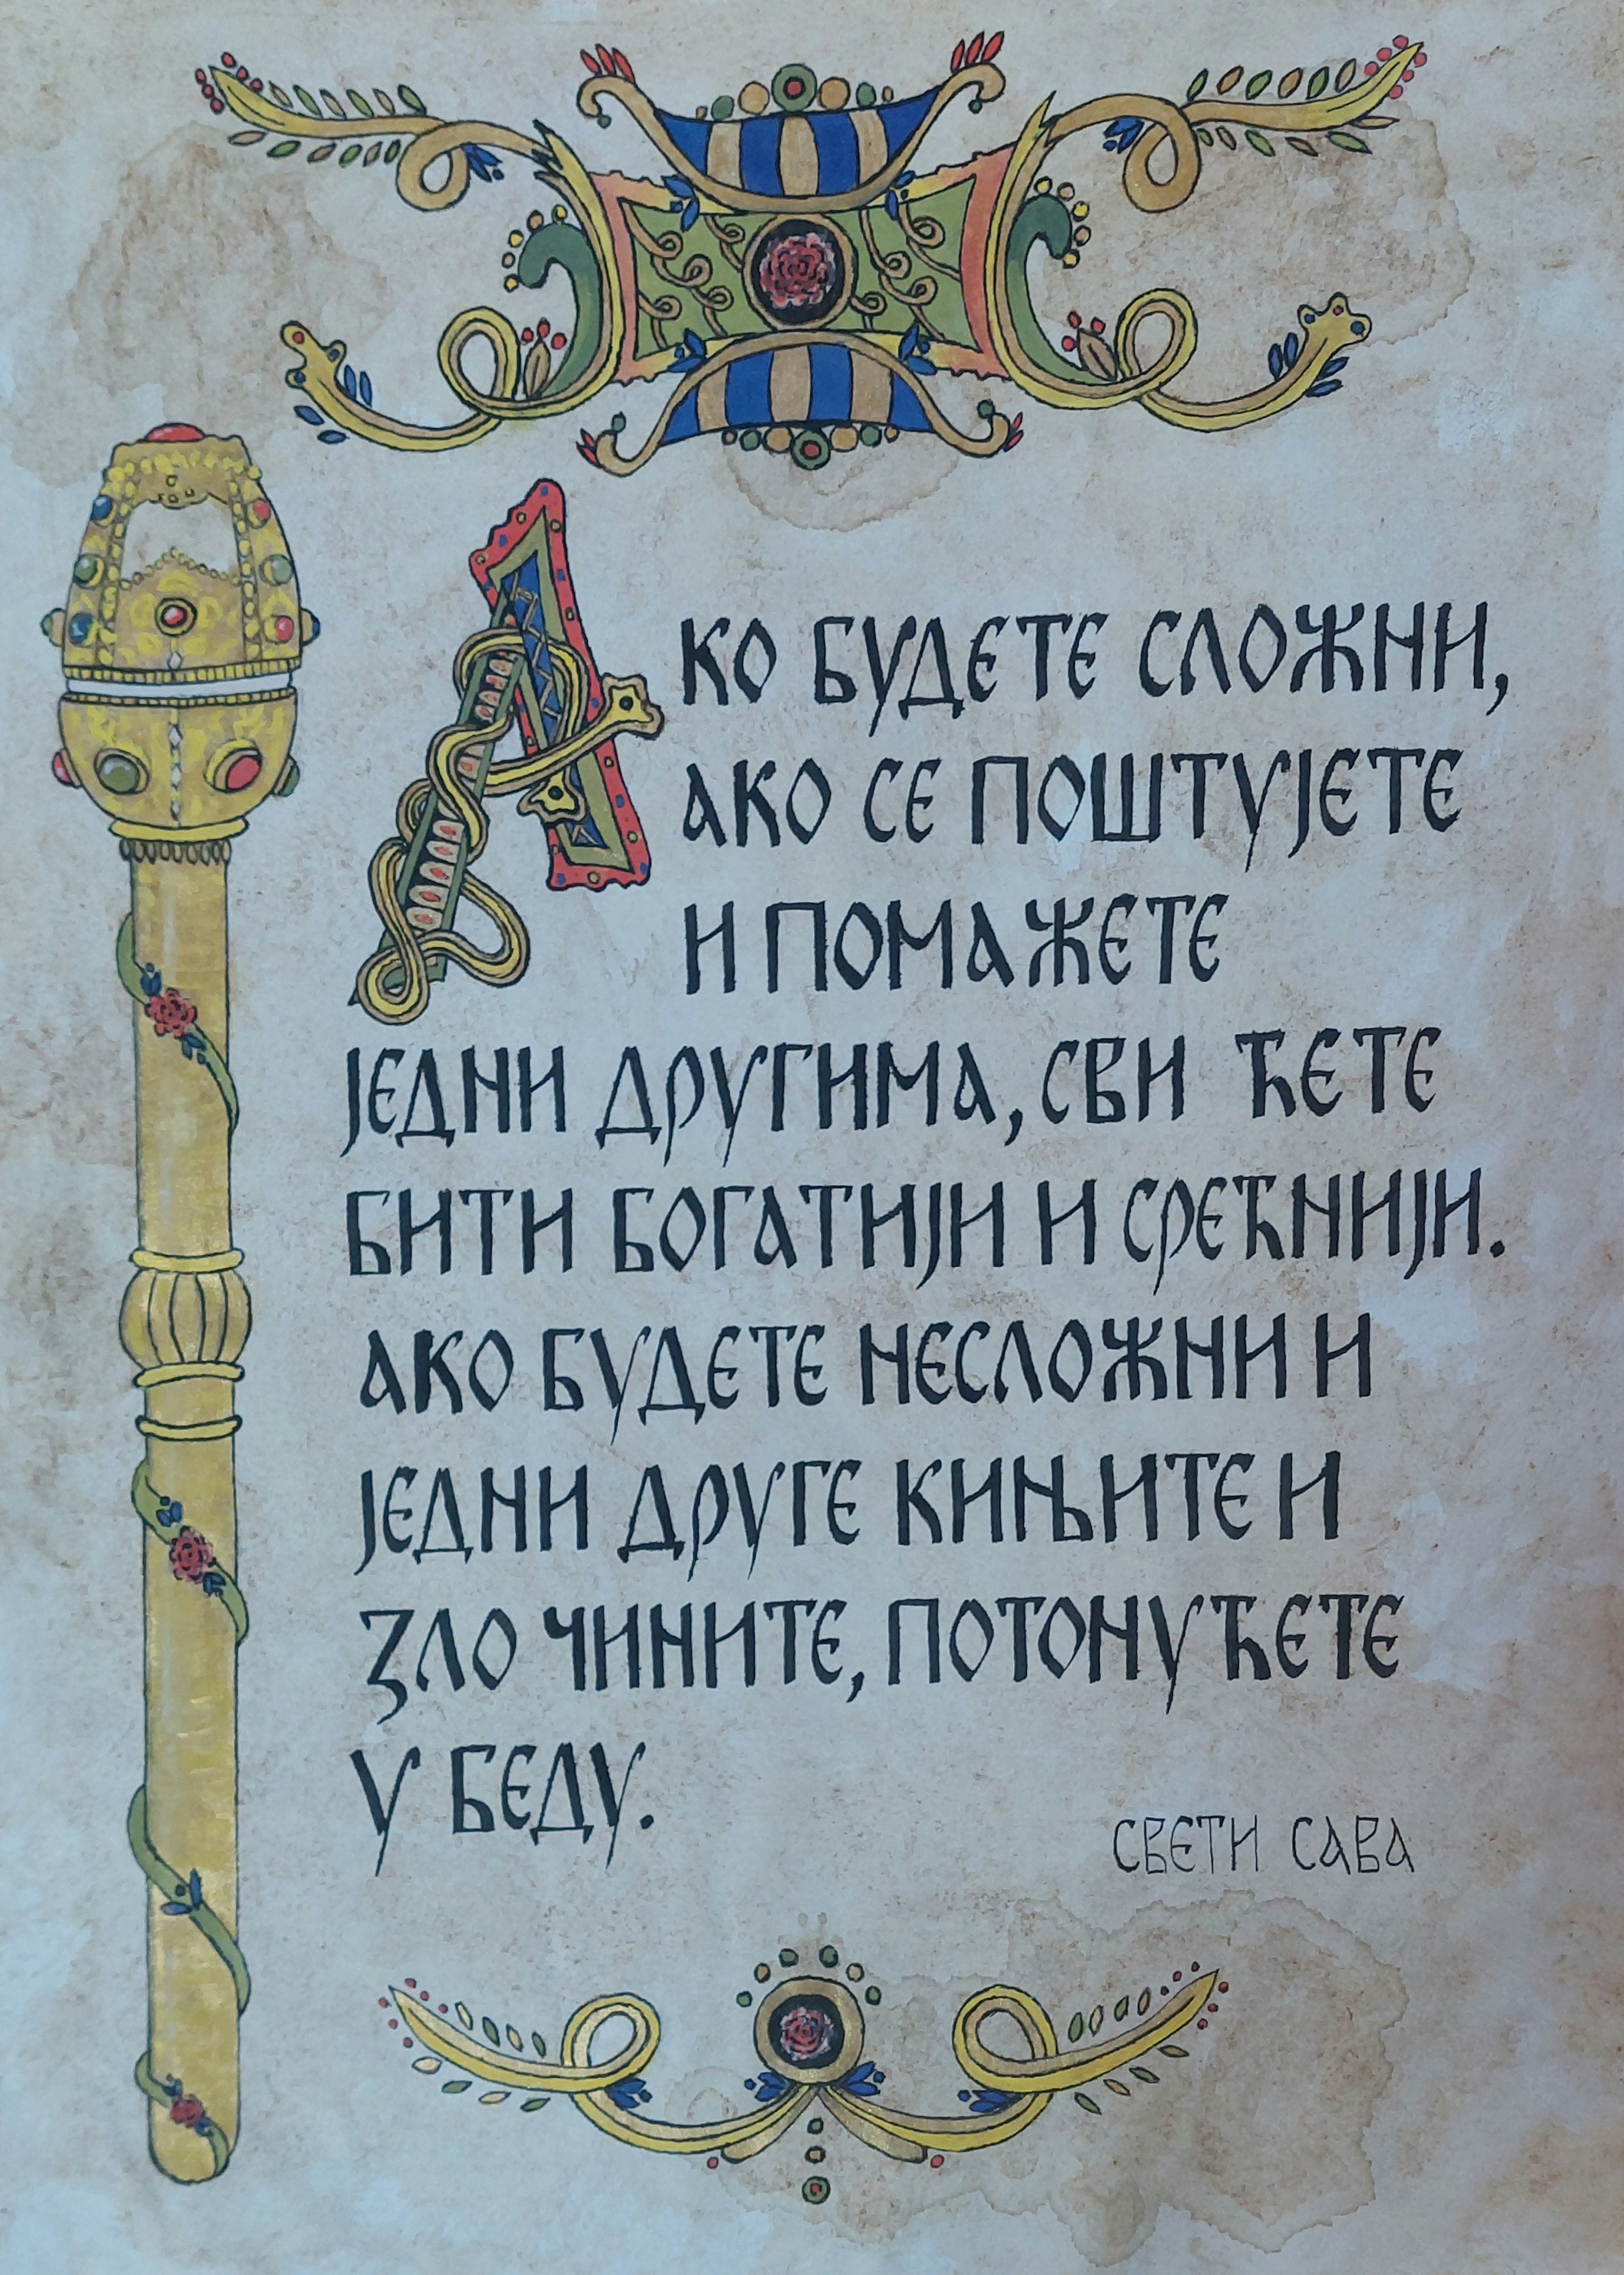 АКО БУДЕТЕ СЛОЖНИ,
АКО СЕ ПОШТУЈЕТЕ
И ПОМАЖЕТЕ
ЈЕДНИ ДРУГИМА, СВИ ЋЕТЕ
БИТИ БОГАТИЈИ И СРЕЋНИЈИ.
АКО БУДЕТЕ НЕСЛОЖНИ И
ЈЕДНИ ДРУГЕ КИЊИТЕ И
ЗЛО ЧИНИТЕ, ПОТОНУЋЕТЕ
У БЕДУ.
СВЕТИ САВА